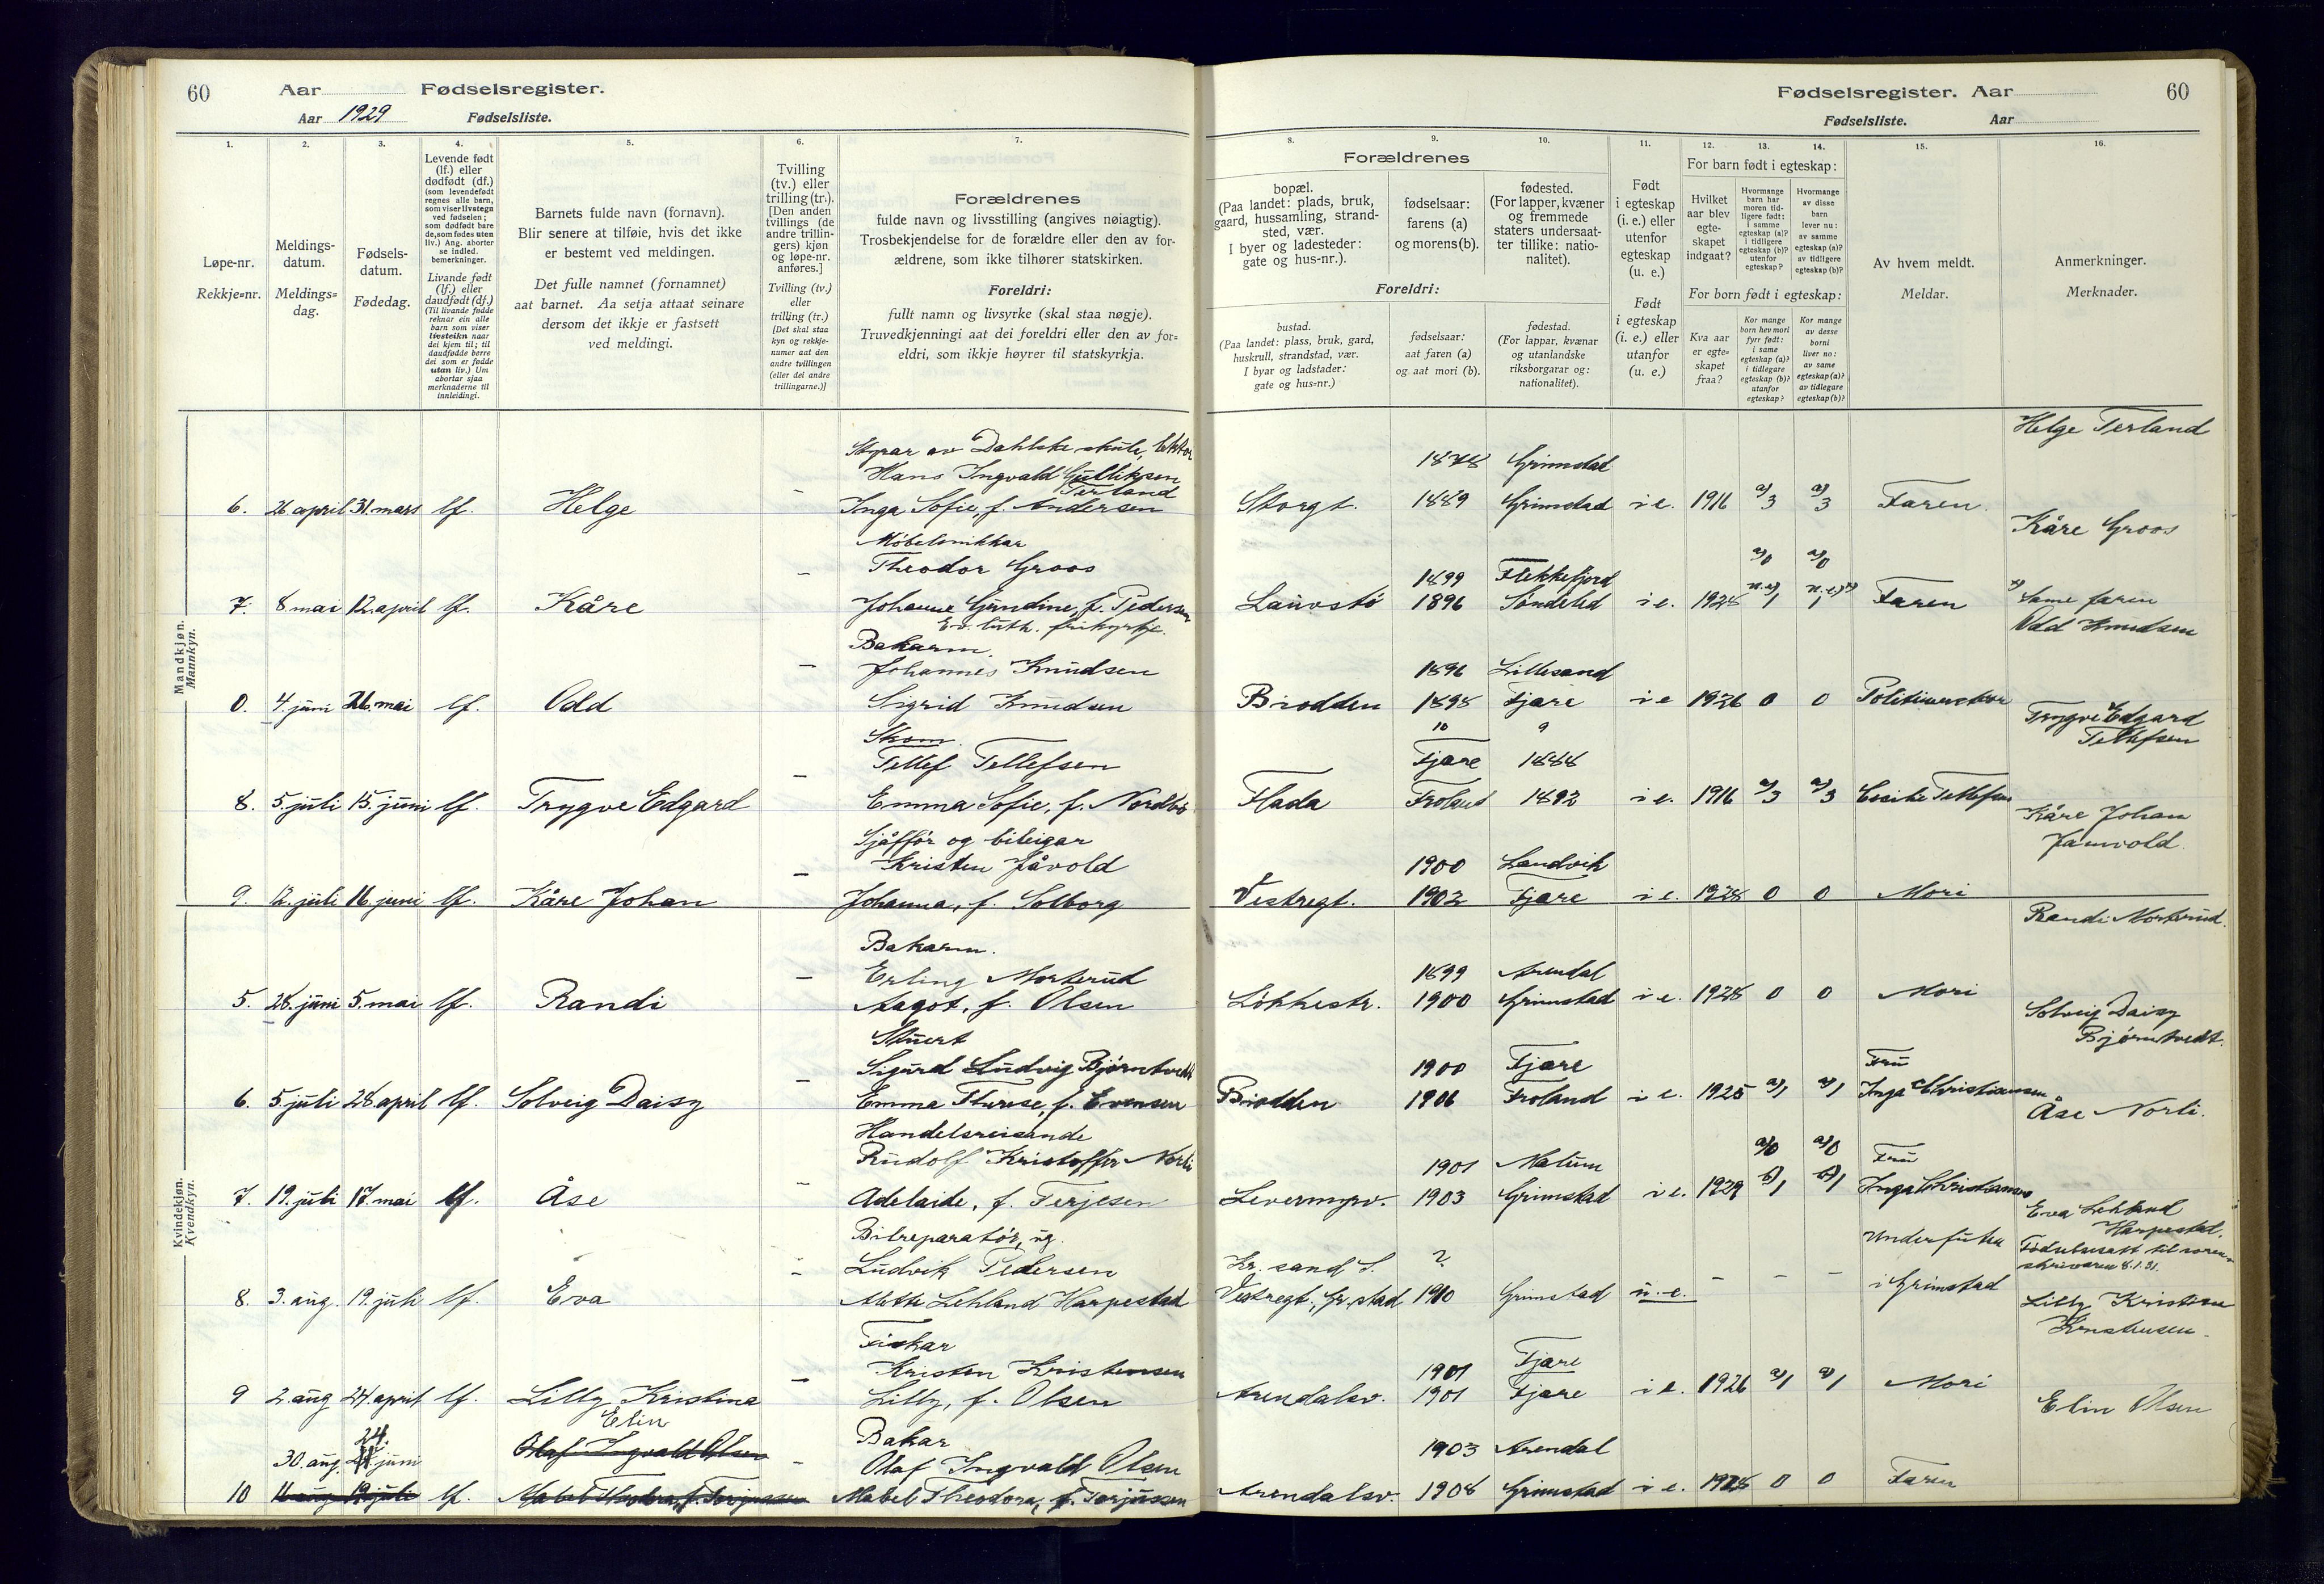 60
Aar
Fødselsregister.
Aar 1929
Fødselsliste.
Fødselsregister. Aar
60
Fødselsliste.
Aar
1.
Løpe-nr.
Rekkje=nr.
2.
Meldings-
datum.
Meldings=
dag.
3.
Fødsels-
datum.
Fødedag.
4.
Levende født
(lf.) eller
dødfødt (df.)
(som levendefødt
regnes alle barn,
som viser livstegn
ved fødselen;
som dødfødt bare
de, som fødes uten
liv.) Ang. aborter
se indled.
bemerkninger.
Livande født
(lf.) eller
daudfødt (df.)
(Til livande fødde
reknar ein alle
barn som viser
livsteikn naar
dei kjem til; til
daudfødde berre
dei som er fødde
utan liv.) Um
abortar sjaa
merknaderne til
innleidingi.
5.
Barnets fulde navn (fornavn).
Blir senere at tilføie, hvis det ikke
er bestemt ved meldingen.
Det fulle namnet (fornamnet)
aat barnet. Aa setja attaat seinare
dersom det ikkje er fastsett
ved meldingi.
6.
Tvilling
(tv.) eller
trilling (tr.).
[Den anden
tvillings (de
andre trillin-
gers) kjøn
og løpe-nr.
anføres.]
Tvilling (tv.)
eller
trilling (tr.)
[Det skal staa
kyn og rekkje-
numer aat den
andre tvillingen
(eller dei andre
trillingarne.)]
7.
Forældrenes
fulde navn og livsstilling (angives nøiagtig).
Trosbekjendelse for de forældre eller den av for-
ældrene, som ikke tilhører statskirken.
Foreldri:
fullt namn og livsyrke (skal staa nøgje).
Truvedkjenningi aat dei foreldri eller den av for=
eldri, som ikkje høyrer til statskyrkja.
8.
Forældrenes
bopæl.
(Paa landet: plads, bruk,
gaard, hussamling, strand-
sted, vær.
I byer og ladesteder:
gate og hus-nr.).
Foreldri:
bustad.
(Paa landet: plass, bruk, gard,
huskrull, strandstad, vær.
I byar og ladstader:
gate og hus=nr.)
9.
fødselsaar:
farens (a)
og morens (b).
fødselsaar:
aat faren (a)
og aat mori (b).
10.
fødested.
(For lapper, kvæner
og fremmede
staters undersaat-
ter tillike: natio-
nalitet).
fødestad.
(For lappar, kvænar
og utanlandske
riksborgarar og:
nationalitet).
11.
Født
i egteskap
(i. e.) eller
utenfor
egteskap
(u. e.)
Født
i egteskap
(i. e.) eller
utanfor
(u. e.)
12.
For barn født i egteskap:
Hvilket
aar blev
egte-
skapet
indgaat?
For born født i egteskap:
Kva aar
er egte=
skapet
fraa?
13.
Hvormange
barn har
moren tid-
ligere født:
i samme
egteskap (a)?
i tidligere
egteskap (b)?
utenfor
egteskap?
Kor mange
born hev mori
fyrr født:
i same
egteskap (a)?
i tidlegare
egteskap (b)?
utanfor
egteskap?
14.
Hvormange
av disse
barn
lever nu:
av samme
egteskap (a)?
av tidligere
egteskap (b)?
Kor mange
av desse
borni
liver no:
av same
egteskap (a)?
av tidlegare
egteskap (b)?
15.
Av hvem meldt.
Meldar.
16.
Anmerkninger.
Merknader.
Mandkjøn.
Mannkyn.
Styrar av Dahlske skule, lektor
Hans Ingvald Gulliksen
Terland
6. 26 april 31. mars lf. Helge – Inga Sofie, f. Andersen
1878 Grimstad
Storgt. 1889 Grimstad i e. 1916 a/3 a/3 Faren.
Helge Terland
Møbelsnikkar
Theodor Groos
7. 8. mai 12. april lf. Kåre – Johanne Gundine, f. Pedersen
Ev. luth. frikyrkje.
1899 Flekkefjord a/0 a/0
Lauvstø 1896 Søndeled i e. 1928 u.e/1 u.e/1 x) Faren
Kåre Groos
x) Same faren
Bakarm.
Johannes Knudsen
0. 4. juni 26. mai lf. Odd – Sigrid Knudsen
1896 Lillesand
Brodden 1898 Fjære i e 1926 0 0
Odd Knudsen
10 9
Skom.
Tellef Tellefsen
8. 5. juli 15. juni lf. Trygve Edgard – Emma Sofie, f.
Fjære 1888
Flada Froland 1892 i e. 1916 a/3 a/3 Tellefsen
Trygve Edgard
Tellefsen
Sjåffør og bileigar
Kristen Jåvold
9. 12. juli 16. juni lf. Kåre Johan – Johanna, f. Solborg
1900 Landvik
Vestregt. 1902 Fjære i e. 1928 0 0 Mori
Kåre Johan
Kvindekjøn.
Kvendkyn.
Bakarm.
Erling Morterud
5. 28. juni 5. mai lf. Randi – Aagot, f. Olsen
1899 Arendal
Løkkestr. 1900 Grimstad i e. 1928 0 0 Mori
Randi Morterud.
Stuert
Sigurd Ludvig Bjørntvedt
6. 5. juli 28. april lf. Solveig Daisy – Emma Therese, f. Evensen
1900 Fjære Fru
Brodden 1906 Froland i e. 1925 a/1 a/1 Inga Christiansen
Solveig Daisy
Bjørntvedt.
Handelsreisande
Rudolf Kristoffer Norli
7. 19. juli 17. mai lf. Åse – Adelaide, f. Terjesen
1901 Malum a/0 a/0 Fru
Levermyrv. 1903 Grimstad i e. 1929 b/1 b/1 Inga Christiansen
Åse Norli.
Bilreparatør, ug.
Ludvik Pedersen
8. 3. aug. 19. juli lf. Eva – Alette Lehland Harpestad
Kr. sand S. ? – – –
Vestregt., Gr.stad 1910 Grimstad u. e. i Grimstad
Eva Lehland
Harpestad.
skrivaren 8.1.31.
Fiskar
Kristen Kristensen
9 2. aug 24. april lf. Lilly Kristina – Lilly, f. Olsen
1901 Fjære
Arendalsv. 1901 Fjære i e. 1926 a/1 a/1 Mori
Lilly Kristine
Elin
24.
30. aug. juni Olaf Ingvald Olsen – Bakar
Olaf Ingvald Olsen
10 11 aug 19. juli lf. Mabel Theodora, f. Terjussen Mabel Theodora, f. Terjussen
1903 Arendal
Arendalsv. 1908 Grimstad i e. 1928 0 0 Faren
Elin Olsen